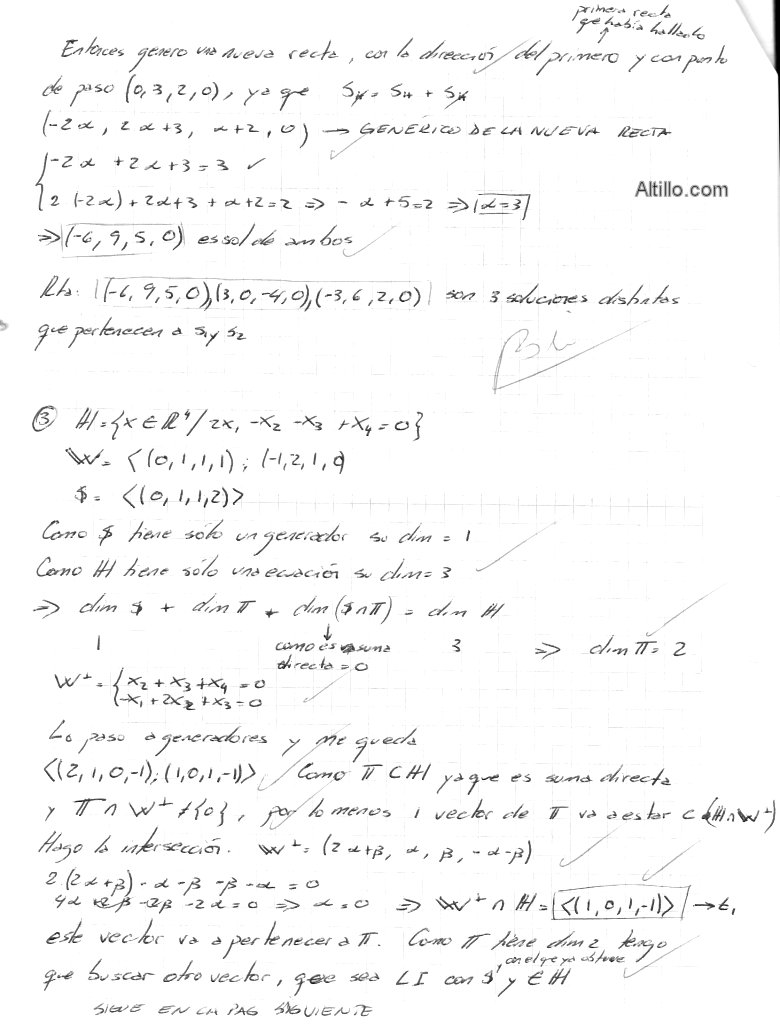 primera recta
que había hallado
Entonces genero una nueva recta, con la dirección del primero y con punto
de paso (0,3,2,0), ya que
(-2α, 2α+3, α+2, 0) → GENÉRICO DE LA NUEVA RECTA
-2α + 2α+3=3 ✓
2(-2α)+2α+3 + α+2=2 => -α+5=2 => α=3
Altillo.com
=> (-6, 9, 5, 0) es sol de ambos
Rta: (-6, 9, 5, 0),(3, 0, -4, 0),(-3, 6, 2, 0) son 3 soluciones distintas
que pertenecen a S₁ y S₂
③ H={X ∈ R⁴/ 2X₁ -X₂ -X₃ +X₄ =0}
W= <(0,1,1,1); (-1,2,1,0)
$= <(0,1,1,2)>
Como $ tiene sólo un generador su dim = 1
Como H tiene sólo una ecuación su dim=3
=> dim $ + dim Π + dim ($∩Π) = dim H
1 como es suma 3 => dim Π= 2
directa = 0
W⊥= { X₂ + X₃ + X₄ = 0
-X₁ + 2X₂ + X₃ = 0
Lo paso a generadores y me queda
<(2, 1, 0, -1); (1, 0, 1, -1)> Como Π ⊂ H ya que es suma directa
y Π ∩ W⊥ ≠ {0}, por lo menos 1 vector de Π va a estar ⊂ (H∩W⊥)
Hago la intersección. W⊥= (2α+β, α, β, -α-β)
2(2α+β) - α - β - β - α = 0
4α + 2β - 2β - 2α = 0 => α = 0 => W⊥ ∩ H = <(1,0,1,-1)> → t₁
este vector va a pertenecer a Π. Como Π tiene dim 2 tengo
con el que ya obtuve
que buscar otro vector, que sea LI con $ y ∈ H
SIGUE EN LA PAG SIGUIENTE